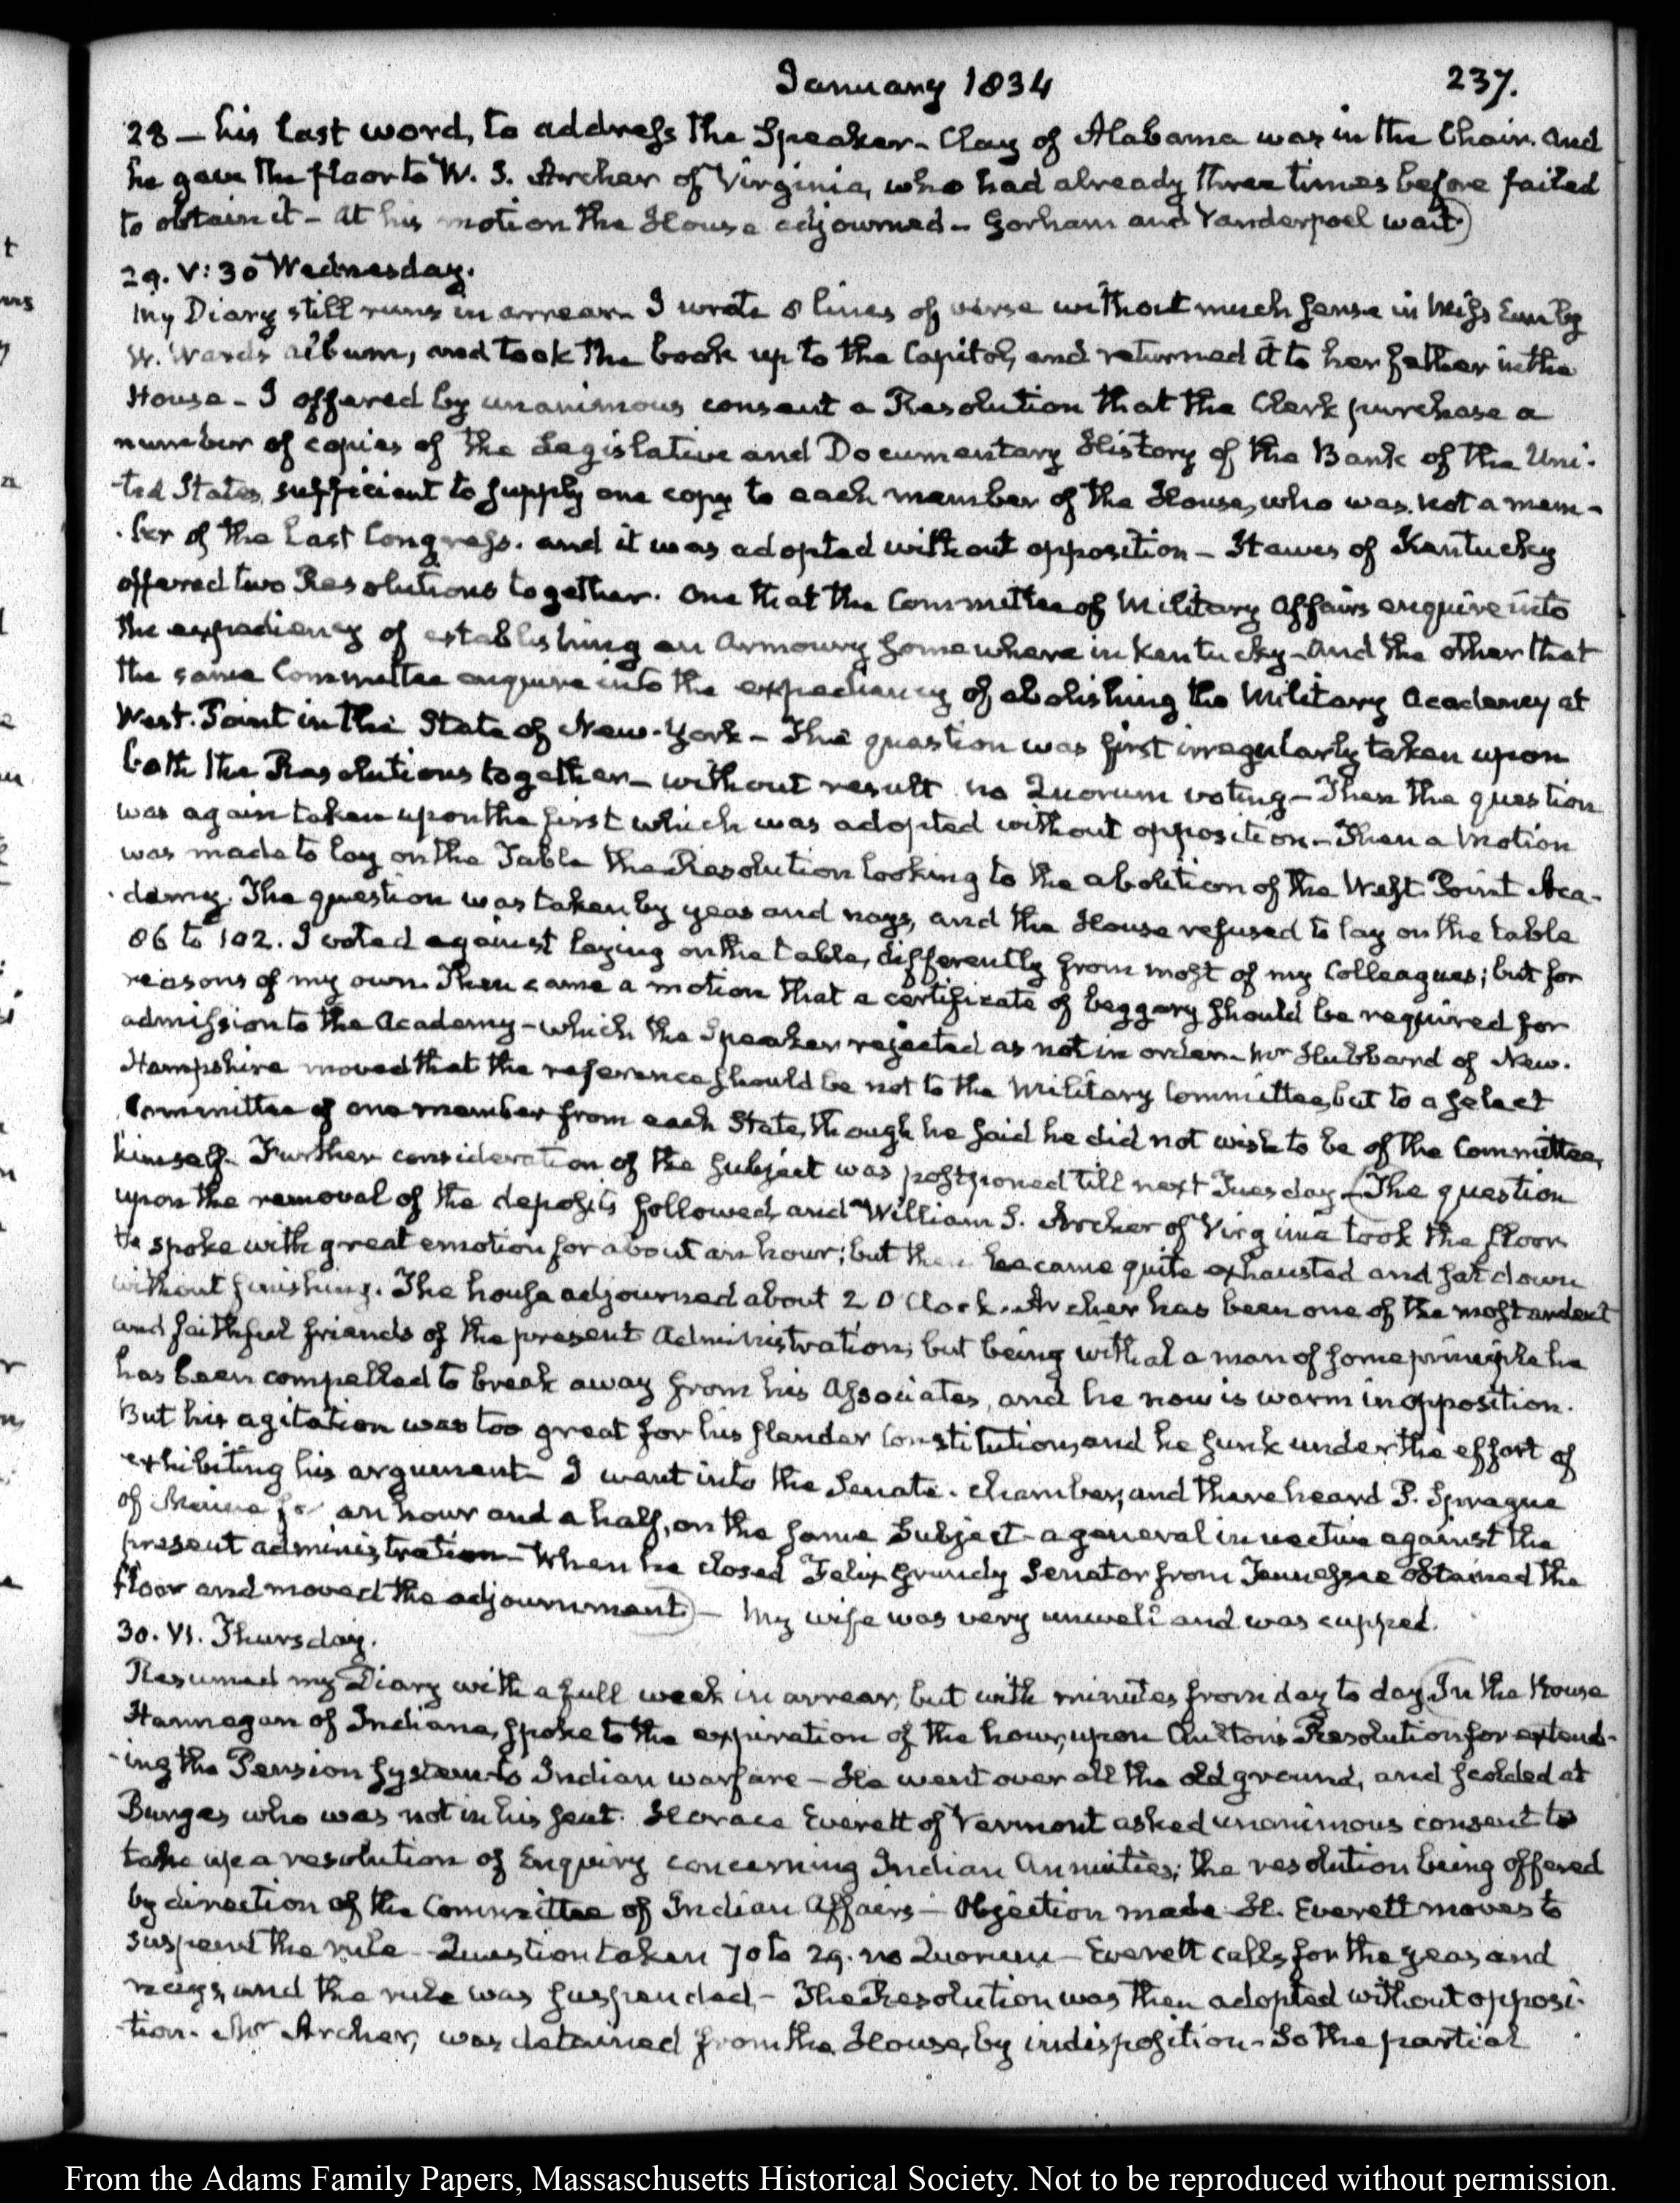 January 1834
237.
28 — his last word, to address the Speaker - Clay of Alabama was in the Chair. and
he gave the floor to W. S. Archer of Virginia, who had already three times before failed
to obtain it - At his motion the House adjourned - Gorham and Vanderpoel wait)
29. V:30 Wednesday.
My Diary still runs in arrear. I wrote 8 lines of verse without much sense in Miss Emily
W. Ward's album, and took the book up to the Capitol, and returned it to her father in the
House - I offered by unanimous consent a Resolution that the Clerk purchase a
number of copies of the Legislative and Documentary History of the Bank of the Uni-
-ted States, sufficient to supply one copy to each member of the House, who was not a mem-
-ber of the last Congress. and it was adopted without opposition - Hawes of Kentucky
offered two Resolutions together. One that the Committee of Military Affairs enquire into
the expediency of establishing an Armoury somewhere in Kentucky - And the other that
the same Committee enquire into the expediency of abolishing the Military Academy at
West-Point in the State of New-York - The question was first irregularly taken upon
both the Resolutions together - without result no Quorum voting - Then the question
was again taken upon the first which was adopted without opposition - Then a motion
was made to lay on the Table the Resolution looking to the abolition of the West Point Aca-
-demy. The question was taken by yeas and nays, and the House refused to lay on the table
86 to 102. I voted against laying on the table, differently from most of my Colleagues; but for
reasons of my own. Then came a motion that a certificate of beggary should be required for
admission to the Academy - which the Speaker rejected as not in order - Mr Hubbard of New-
Hampshire moved that the reference should be not to the Military Committee, but to a select
Committee of one member from each State, though he said he did not wish to be of the Committee,
himself - Further consideration of the subject was postponed till next Tuesday - (The question
upon the removal of the deposits followed, and William S. Archer of Virginia took the floor
He spoke with great emotion for about an hour; but then became quite exhausted and sat down
without finishing. The house adjourned about 2 O'Clock. Archer has been one of the most ardent
and faithful friends of the present Administration; but being withal a man of some principle he
has been compelled to break away from his Associates, and he now is warm in opposition.
But his agitation was too great for his slender Constitution, and he sunk under the effort of
exhibiting his argument - I went into the Senate-chamber, and there heard P. Sprague
of Maine for an hour and a half, on the same Subject - a general invective against the
present administration - When he closed Felix Grundy Senator from Tennessee obtained the
floor and moved the adjournment) - My wife was very unwell and was cupped.
30. VI. Thursday.
Resumed my Diary with a full week in arrear, but with minutes from day to day. (In the House
Hannegan of Indiana, spoke to the expiration of the hour, upon Chilton's Resolution for extend-
-ing the Pension system to Indian warfare - He went over all the old ground, and scolded at
Burges who was not in his seat. Horace Everett of Vermont asked unanimous consent to
take up a resolution of Enquiry concerning Indian Annuities; the resolution being offered
by direction of the Committee of Indian Affairs - Objection made - H. Everett moves to
suspend the rule - Question taken 70 to 29. no Quorum - Everett calls for the yeas and
nays, and the rule was suspended, - The Resolution was then adopted without opposi-
-tion - Mr Archer, was detained from the House, by indisposition - So the partial
From the Adams Family Papers, Massachusetts Historical Society. Not to be reproduced without permission.